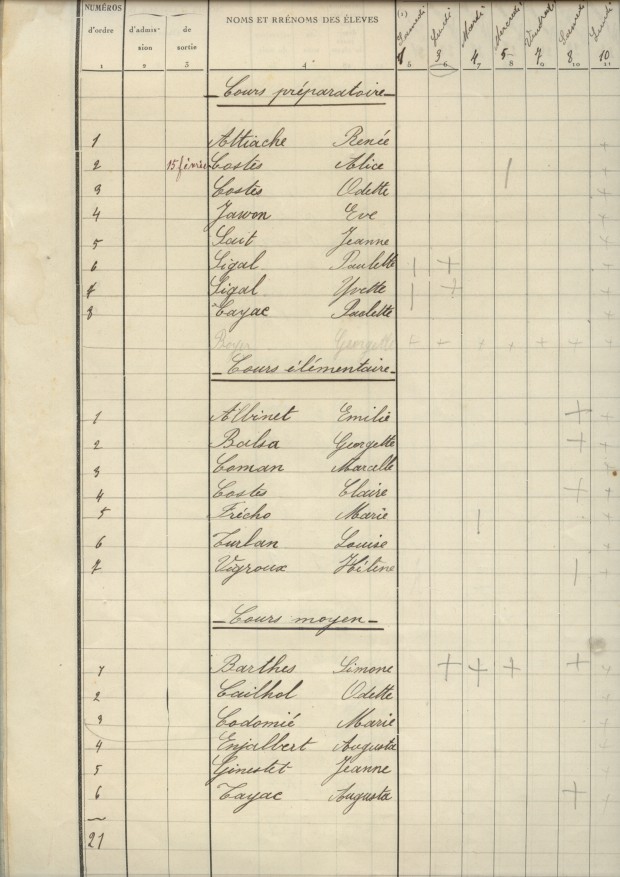 NUMÉROS NOMS ET RRÉNOMS DES ÉLEVES (1) Samedi Lundi Mardi Mercredi Vendredi Samedi Lundi
d'ordre d'admis-sion de sortie 1 3 4 5 7 8 10
1 2 3 4 5 6 7 8 9 10 11
Cours préparatoire
1 Attiache Renée
2 15 février Costes Alice
3 Costes Odette
4 Jawon Eve
5 Sait Jeanne
6 Sigal Paulette
7 Sigal Yvette
8 Tayac Paulette
Boyer Georgette
Cours élémentaire
1 Albinet Emilie
2 Balsa Georgette
3 Coman Marcelle
4 Costes Claire
5 Frécho Marie
6 Turlan Louise
7 Vigroux Hélène
Cours moyen
1 Barthes Simone
2 Cailhol Odette
3 Codomié Marie
4 Enjalbert Augusta
5 Ginestet Jeanne
6 Tayac Augusta
21